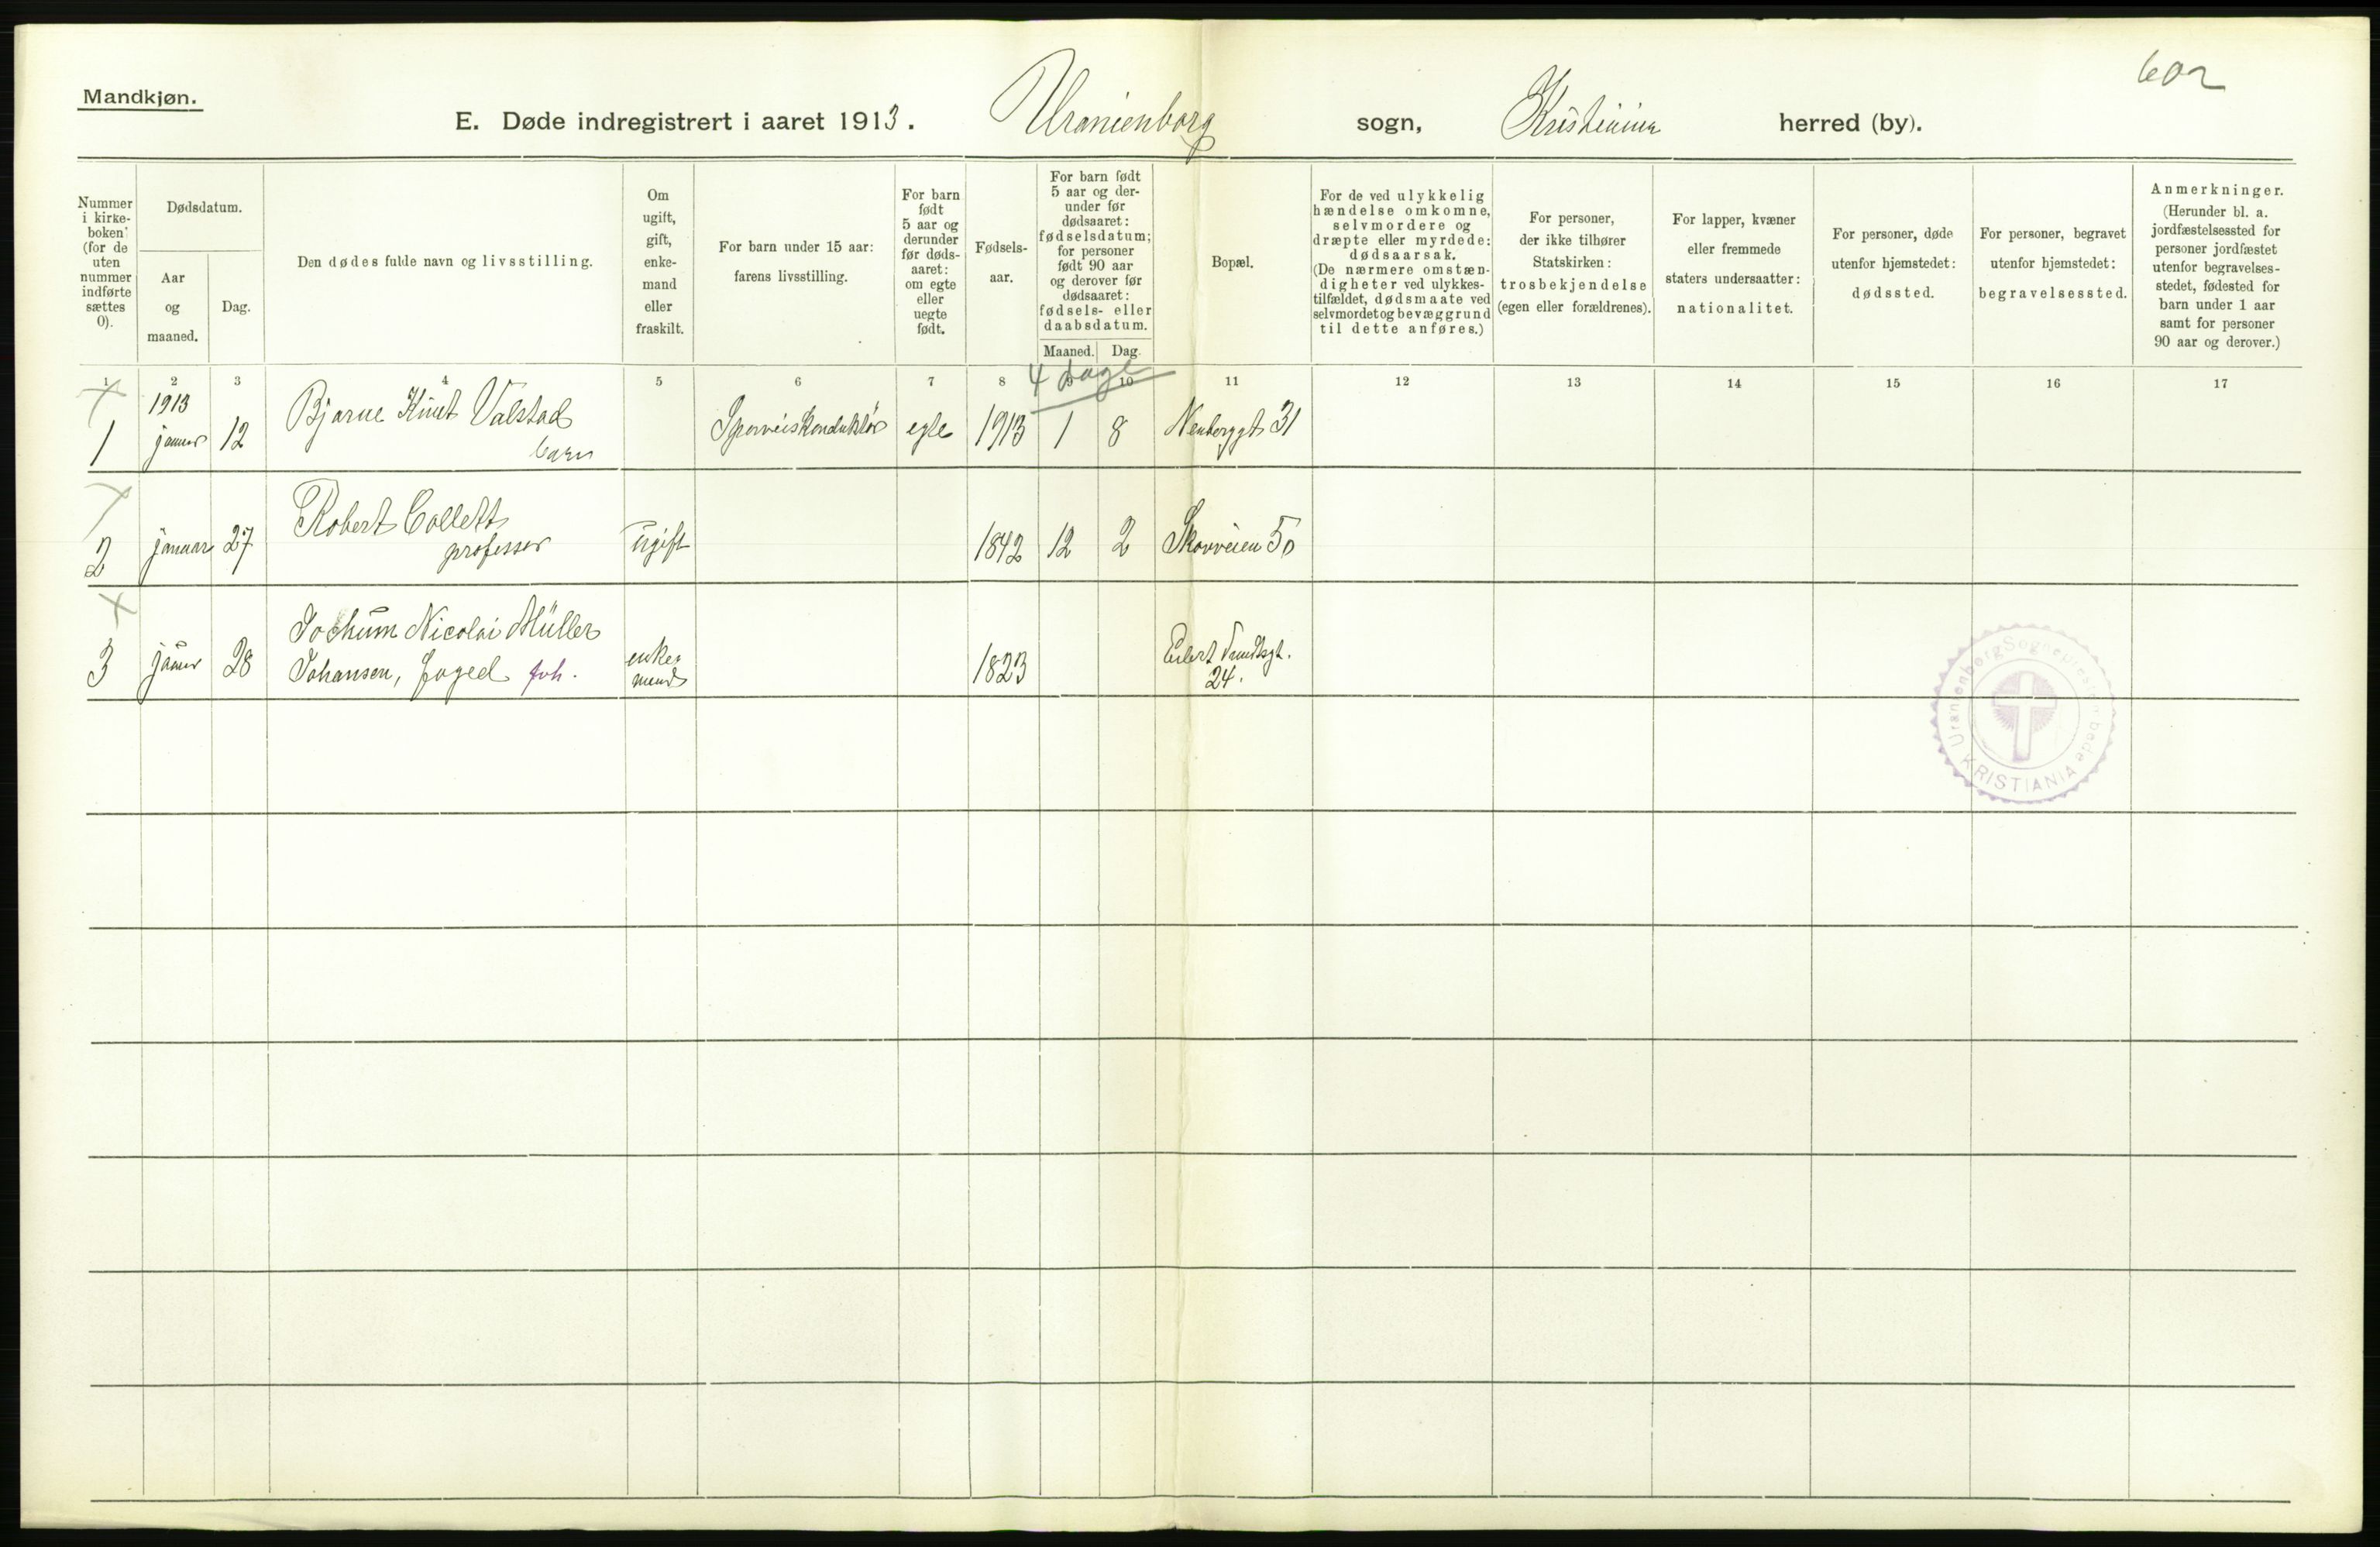 602
Mandkjøn.
E. Døde indregistrert i aaret 1913. Uranienborg sogn, Kristiania herred (by).
Nummer
i kirke-
boken
(for de
uten
nummer
indførte
sættes
0).
Dødsdatum.
Aar
og
maaned.
Dag.
Den dødes fulde navn og livsstilling.
Om
ugift,
gift,
enke-
mand
eller
fraskilt.
For barn under 15 aar:
farens livsstilling.
For barn
født
5 aar og
derunder
før døds-
aaret:
om egte
eller
uegte
født.
Fødsels-
aar.
For barn født
5 aar og der-
under før
dødsaaret:
fødselsdatum;
for personer
født 90 aar
og derover før
dødsaaret:
fødsels- eller
daabsdatum.
Maaned. Dag.
Bopæl.
For de ved ulykkelig
hændelse omkomne,
selvmordere og
dræpte eller myrdede:
dødsaarsak.
(De nærmere omstæn-
digheter ved ulykkes-
tilfældet, dødsmaate ved
selvmordet og bevæggrund
til dette anføres.)
For personer,
der ikke tilhører
Statskirken:
trosbekjendelse
(egen eller forældrenes).
For lapper, kvæner
eller fremmede
staters undersaatter:
nationalitet.
For personer, døde
utenfor hjemstedet:
dødssted.
For personer, begravet
utenfor hjemstedet:
begravelsessted.
Anmerkninger.
(Herunder bl. a.
jordfæstelsessted for
personer jordfæstet
utenfor begravelses-
stedet, fødested for
barn under 1 aar
samt for personer
90 aar og derover.)
1 2 3 4 5 6 7 8 9 10 11 12 13 14 15 16 17
4 dage
1913
1 januar 12 Bjarne Knut Valstad Sporveiskonduktør egte 1913 1 8 Neuberggt 31
barn
2 januar 27 Robert Collett ugift 1842 12 2 Skovveien 50
professor
3 januar 28 Jochum Nicolai Müller enke- 1823 Eilert Sundtsgt.
Johansen, foged fvh. mand 24.
Uranienborg Sogneprestembede
KRISTIANIA